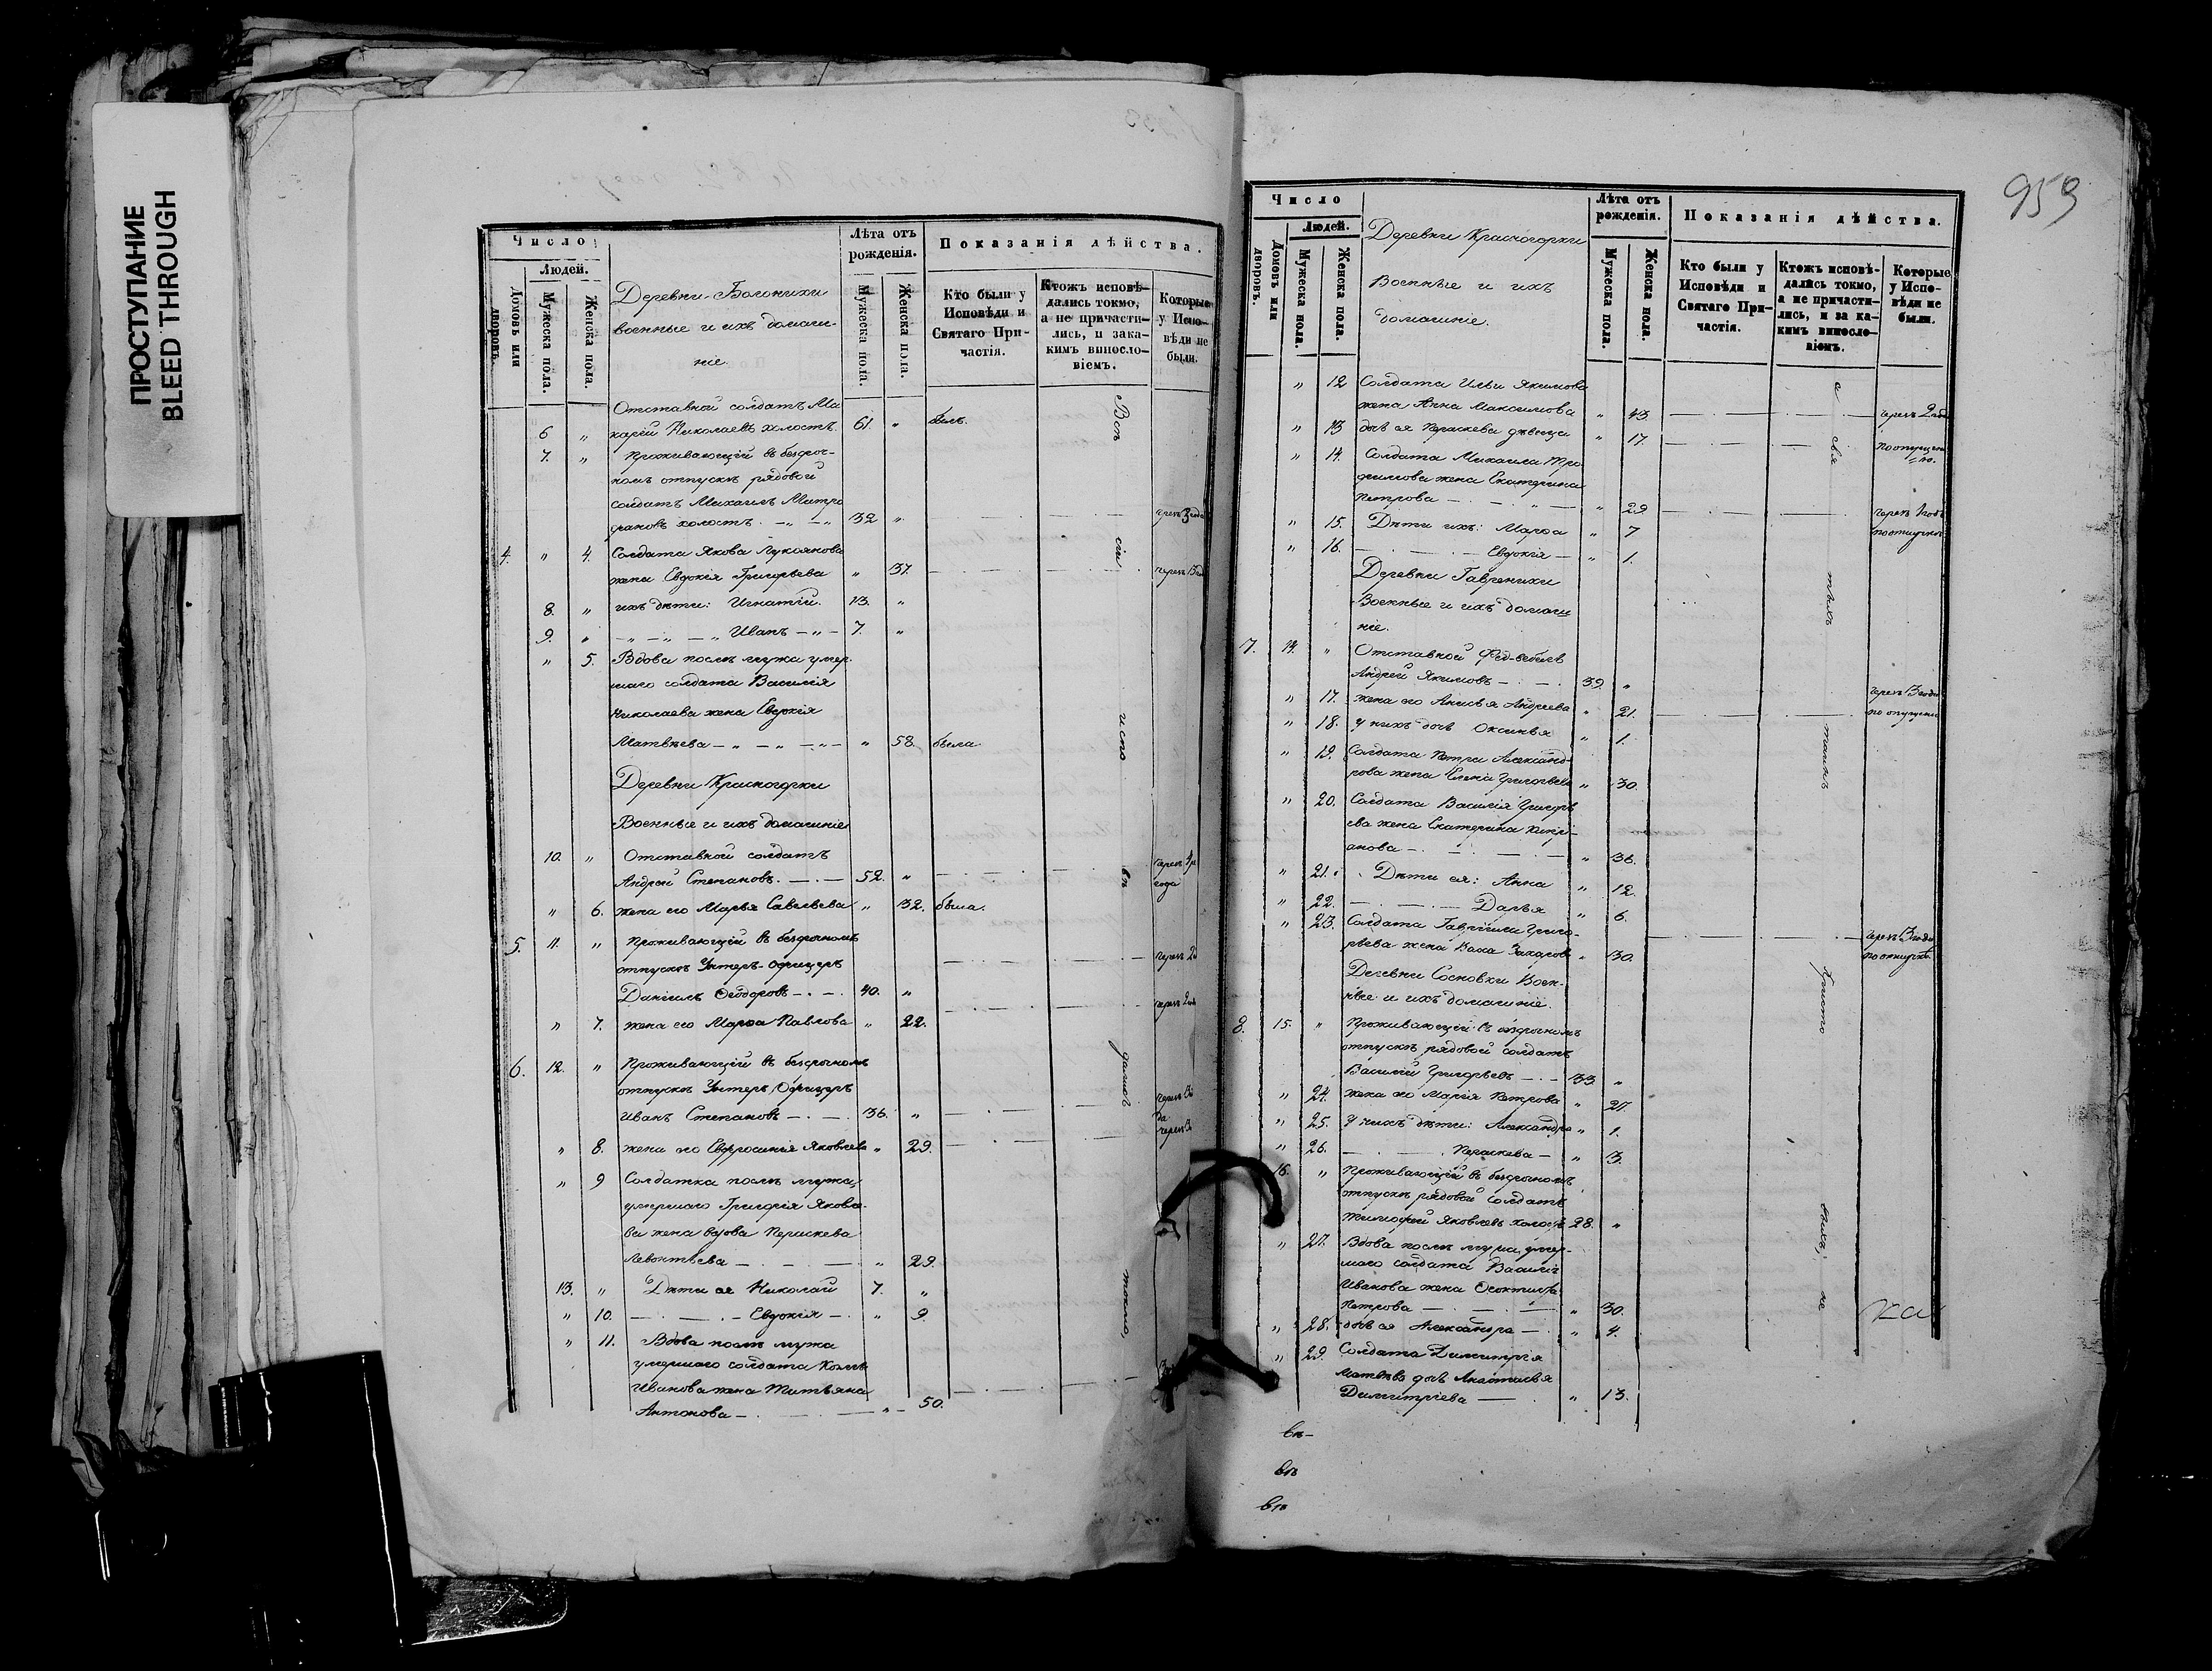 ПРОСТУПАНИЕ
BLEED THROUGH
Число
Людей.
Домовъ или дворовъ.
Мужеска пола.
Женска пола.
Деревни Болонихи
военные и ихъ домаш-
ніе.
Лѣта отъ
рожденія.
Мужеска пола.
Женска пола.
Показанія дѣйства.
Кто были у
Исповѣди и
Святаго При-
частія.
Ктожъ исповѣ-
дались токмо,
а не причасти-
лись, и зака-
кимъ винословіемъ.
Которые
у Испо-
вѣди не
были.
Отставной солдатъ Ма
6 " карій Николаевъ холостъ. 61. " былъ.
7. " Проживающій въ безсроч-
номъ отпускѣ рядовой
солдатъ Михаилъ Митро
фановъ холостъ. 32 " чрезъ 3 года
4. " 4. Солдата Якова Лукоянова
жена Евдокія Григорьева " 37.
8. " ихъ дѣти: Игнатій. 13. "
9. " Иванъ 7. "
" 5. Вдова послѣ мужа умер-
шаго солдата Василія
Николаева жена Евдокія
Матвѣева " 58. была
Деревни Красногорки
Военные и ихъ домашніе
10. " Отставной солдатъ
Андрей Степановъ. 52. "
" 6. жена его Марья Савельева " 32. была.
5. 11. " Проживающій въ безсрочномъ
отпускѣ Унтеръ-офицеръ
Даніилъ Ѳеодоровъ 40. "
" 7. жена его Марѳа Павлова " 22.
6. 12. " Проживающій въ безсрочномъ
отпускѣ Унтеръ Офицеръ
Иванъ Степановъ 36. "
" 8. жена его Евфросинія Яковлева " 29.
" 9 Солдатка послѣ мужа
умершаго Григорія Яковле-
ва жена вдова Параскева
Левонтьева " 29.
13. " Дѣти ея Николай 7. "
" 10. Евдокія " 9.
" 11. Вдова послѣ мужа
умершаго солдата Козмы
Иванова жена Татьяна
Антонова " 50.
Вси
сіи
испо
вѣ
дались
токмо,
959
Число
Людей.
Домовъ или дворовъ.
Мужеска пола.
Женска пола.
Деревни Красногорки
Военные и ихъ
домашніе.
Лѣта отъ
рожденія.
Мужеска пола.
Женска пола.
Показанія дѣйства.
Кто были у
Исповѣди и
Святаго При-
частія.
Ктожъ исповѣ-
дались токмо,
а не причасти-
лись, и за ка-
кимъ винословіемъ.
Которые
у Испо-
вѣди не
были.
" 12 Солдата Ильи Якимова
жена Анна Максимова " 43.
" 13 дочь ея Параскева дѣвица " 17.
" 14. Солдата Михаила Тро
фимова жена Екатерина
Петрова " 29
" 15. Дѣти ихъ: Марѳа " 7
" 16. Евдокія " 1.
Деревни Гавренихи
Военные и ихъ домаш
ніе.
7. 14. " Отставной Фед-вебель
Андрей Якимовъ 39. "
" 17. жена его Анисья Андреева " 21.
" 18. у нихъ дочь Оксинья " 1.
" 19. Солдата Петра Александ-
рова жена Елена Григорьева " 30.
" 20. Солдата Василія Григорь
ева жена Екатерина Кипрі-
анова " 36.
" 21. Дѣти ея: Анна " 12.
" 22. Дарья " 6.
" 23. Солдата Гавріила Григо-
рьева жена Васса Захарова " 30.
Деревни Сосновки Воен-
ные и ихъ домашніе.
8. 15. " Проживающій въ безсрочномъ
отпускѣ рядовой солдатъ
Василій Григорьевъ 33. "
" 24. жена его Марія Петрова " 27.
" 25. У нихъ дѣти: Александра " 1.
" 26. Параскева " 3.
16. " Проживающій въ безсрочномъ
отпускѣ рядовой солдатъ
Тимофей Яковлевъ холостъ 28. "
" 27. Вдова послѣ мужа умер-
шаго солдата Василія
Иванова жена Ѳеоктиста
Петрова " 30.
" 28. дочь ея Александра " 4.
" 29. Солдата Димитрія
Матвѣева дочь Анастасія
Димитріева " 13.
а
свя
тыхъ
таинъ
Христо
выхъ,
не
вѣ-
вѣ
вѣ